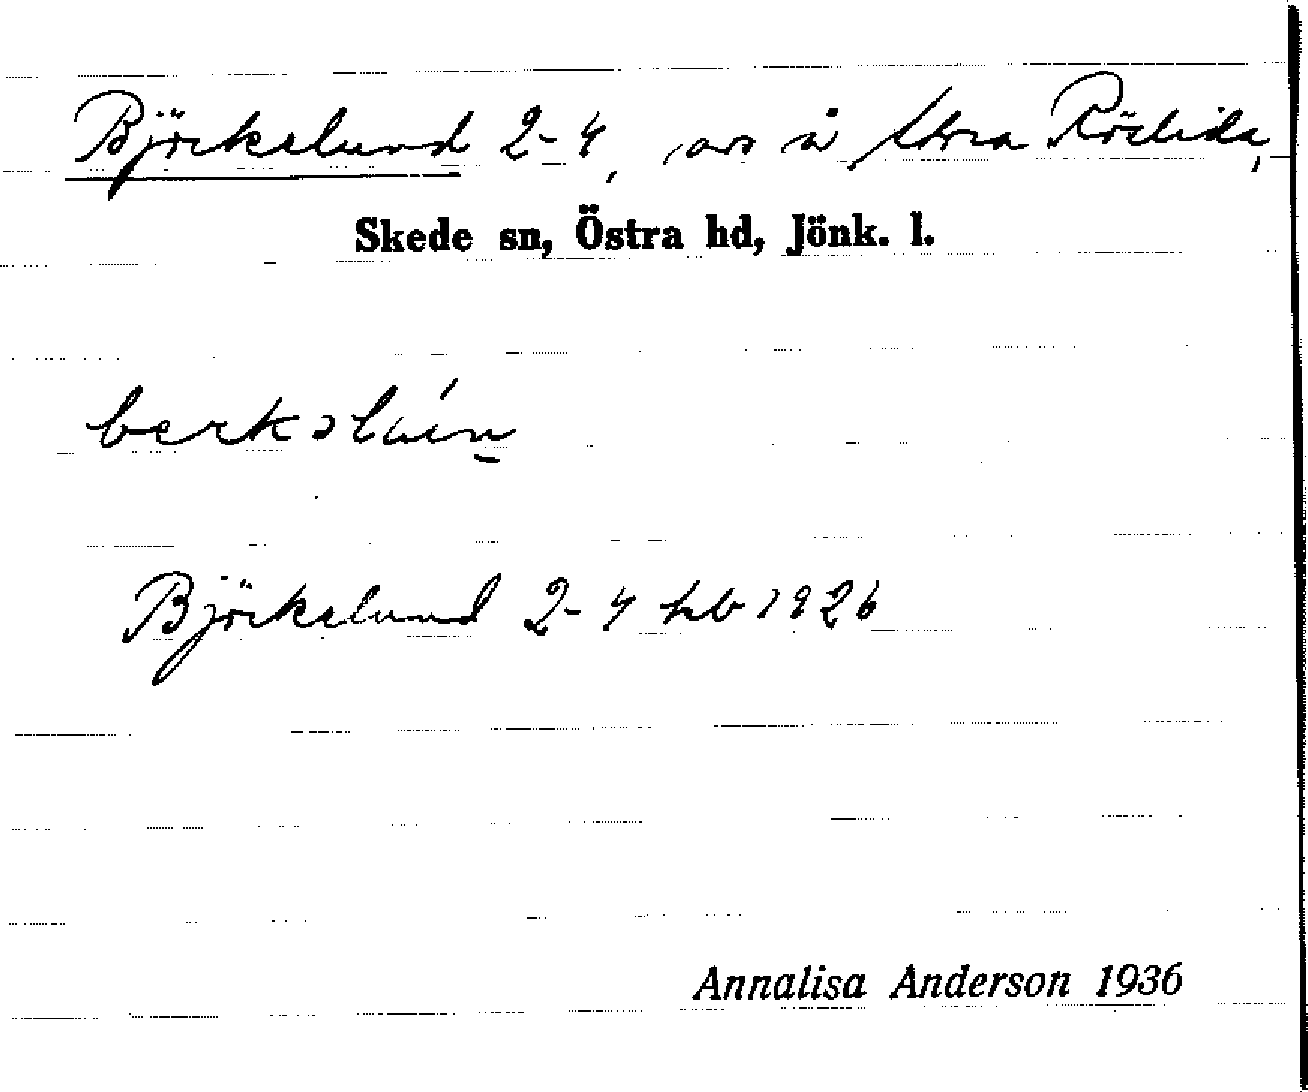 Björkslund 2-4, avs å Stora Röslida,
Skede sn, Östra hd, Jönk. l.
Björkslund 2-4 hb 1926
Annalisa Anderson 1936